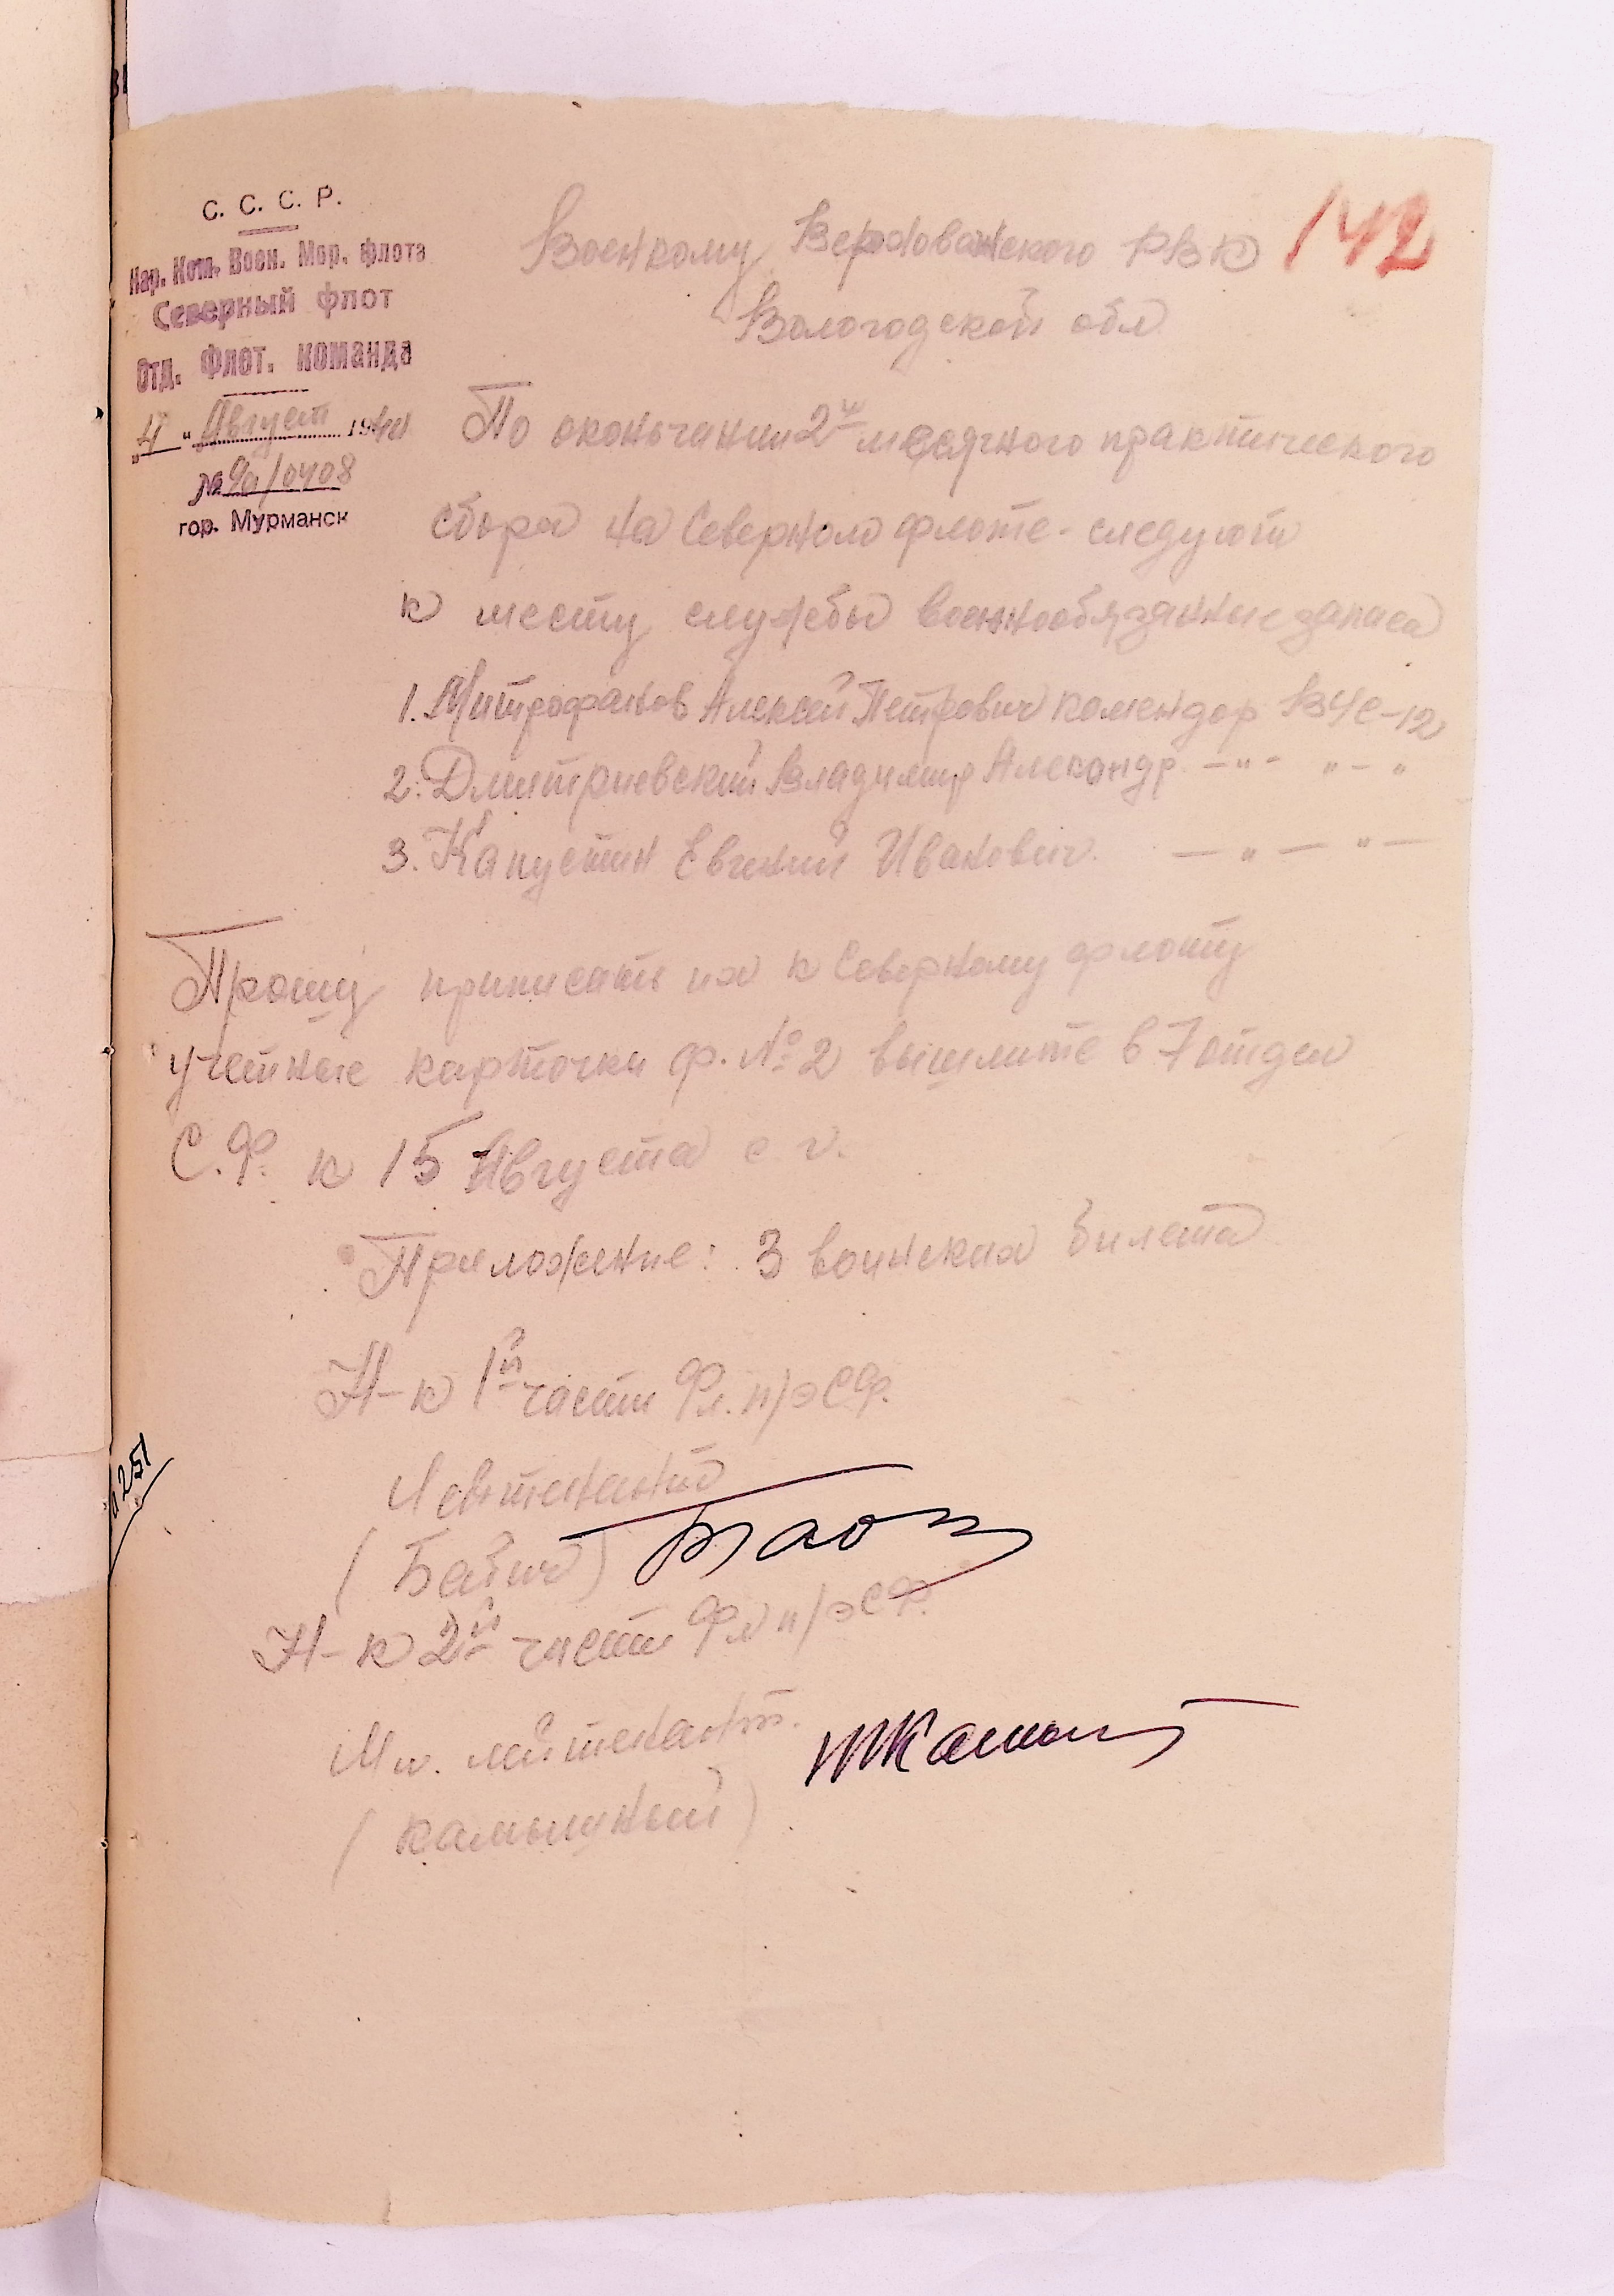 142
С. С. С. Р.
Нар. Ком. Воен. Мор. флота
Северный флот
Отд. Флот. команда
"4" Август 194
№ 9а/0408
гор. Мурманск
Военкому Верховажского РВК
Вологодской обл
По окончании 2х месячного практического
сбора на Северном флоте - следуют
к месту службы военнообязанные запаса
1. Митрофанов Алексей Петрович комендор ВУС-12
2. Дмитриевский Владимир Александр. -"- "-"
3. Капустин Евгений Иванович. —"— "—
Прошу приписать их к Северному флоту
учетные карточки ф. №2 вышлите в 7 отдел
С.Ф. к 15 Августа с. г.
Приложение: 3 воинских билета
Н-к 1й части Фл. п/э СФ.
Лейтенант
Н-к 2й части Фл п/э СФ.
Мл. лейтенант.
251